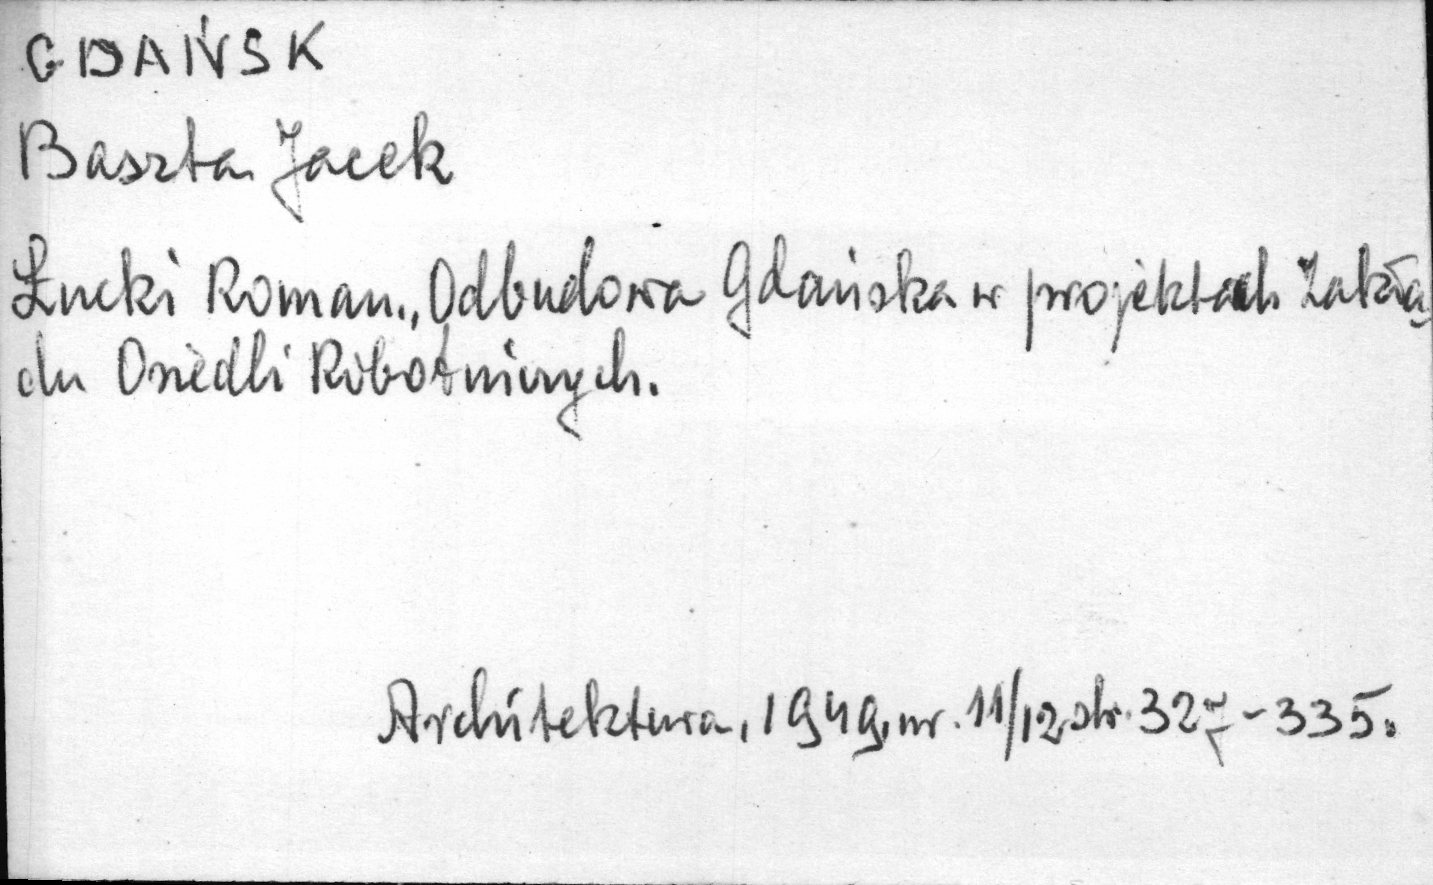 GDAŃSK
Baszta Jacek
Łucki Roman., Odbudowa Gdańska w projektach Zakła,
du Osiedli Robotniczych.
Architektura, 1949, nr. 11/12 str. 327-335.